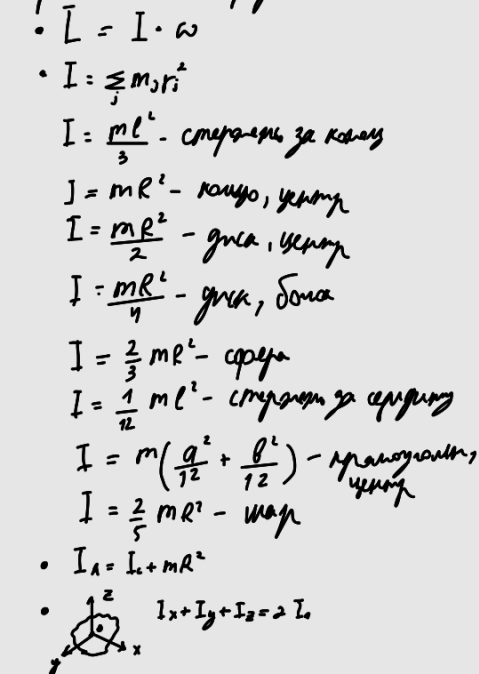 • L̄ = I · ω
• I = Σⱼ mⱼrⱼ²
I = ml²/3 - стержень за конец
J = mR² - кольцо, центр
I = mR²/2 - диск, центр
I = mR²/4 - диск,
I = 2/3 mR² - сфера
I = 1/12 ml² - стержень за середину
I = m(a²/12 + b²/12) - прямоугольн, центр
I = 2/5 mR² - шар
• I_A = I_c + mR²
• z Iₓ + I_y + I_z = 2 I₀
0
y x